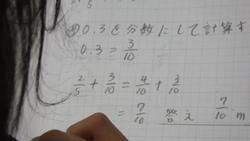 ②0.3を分数にして計算す
0.3 = 3/10
2/5 + 3/10 = 4/10 + 3/10
= 7/10 答え 7/10 m